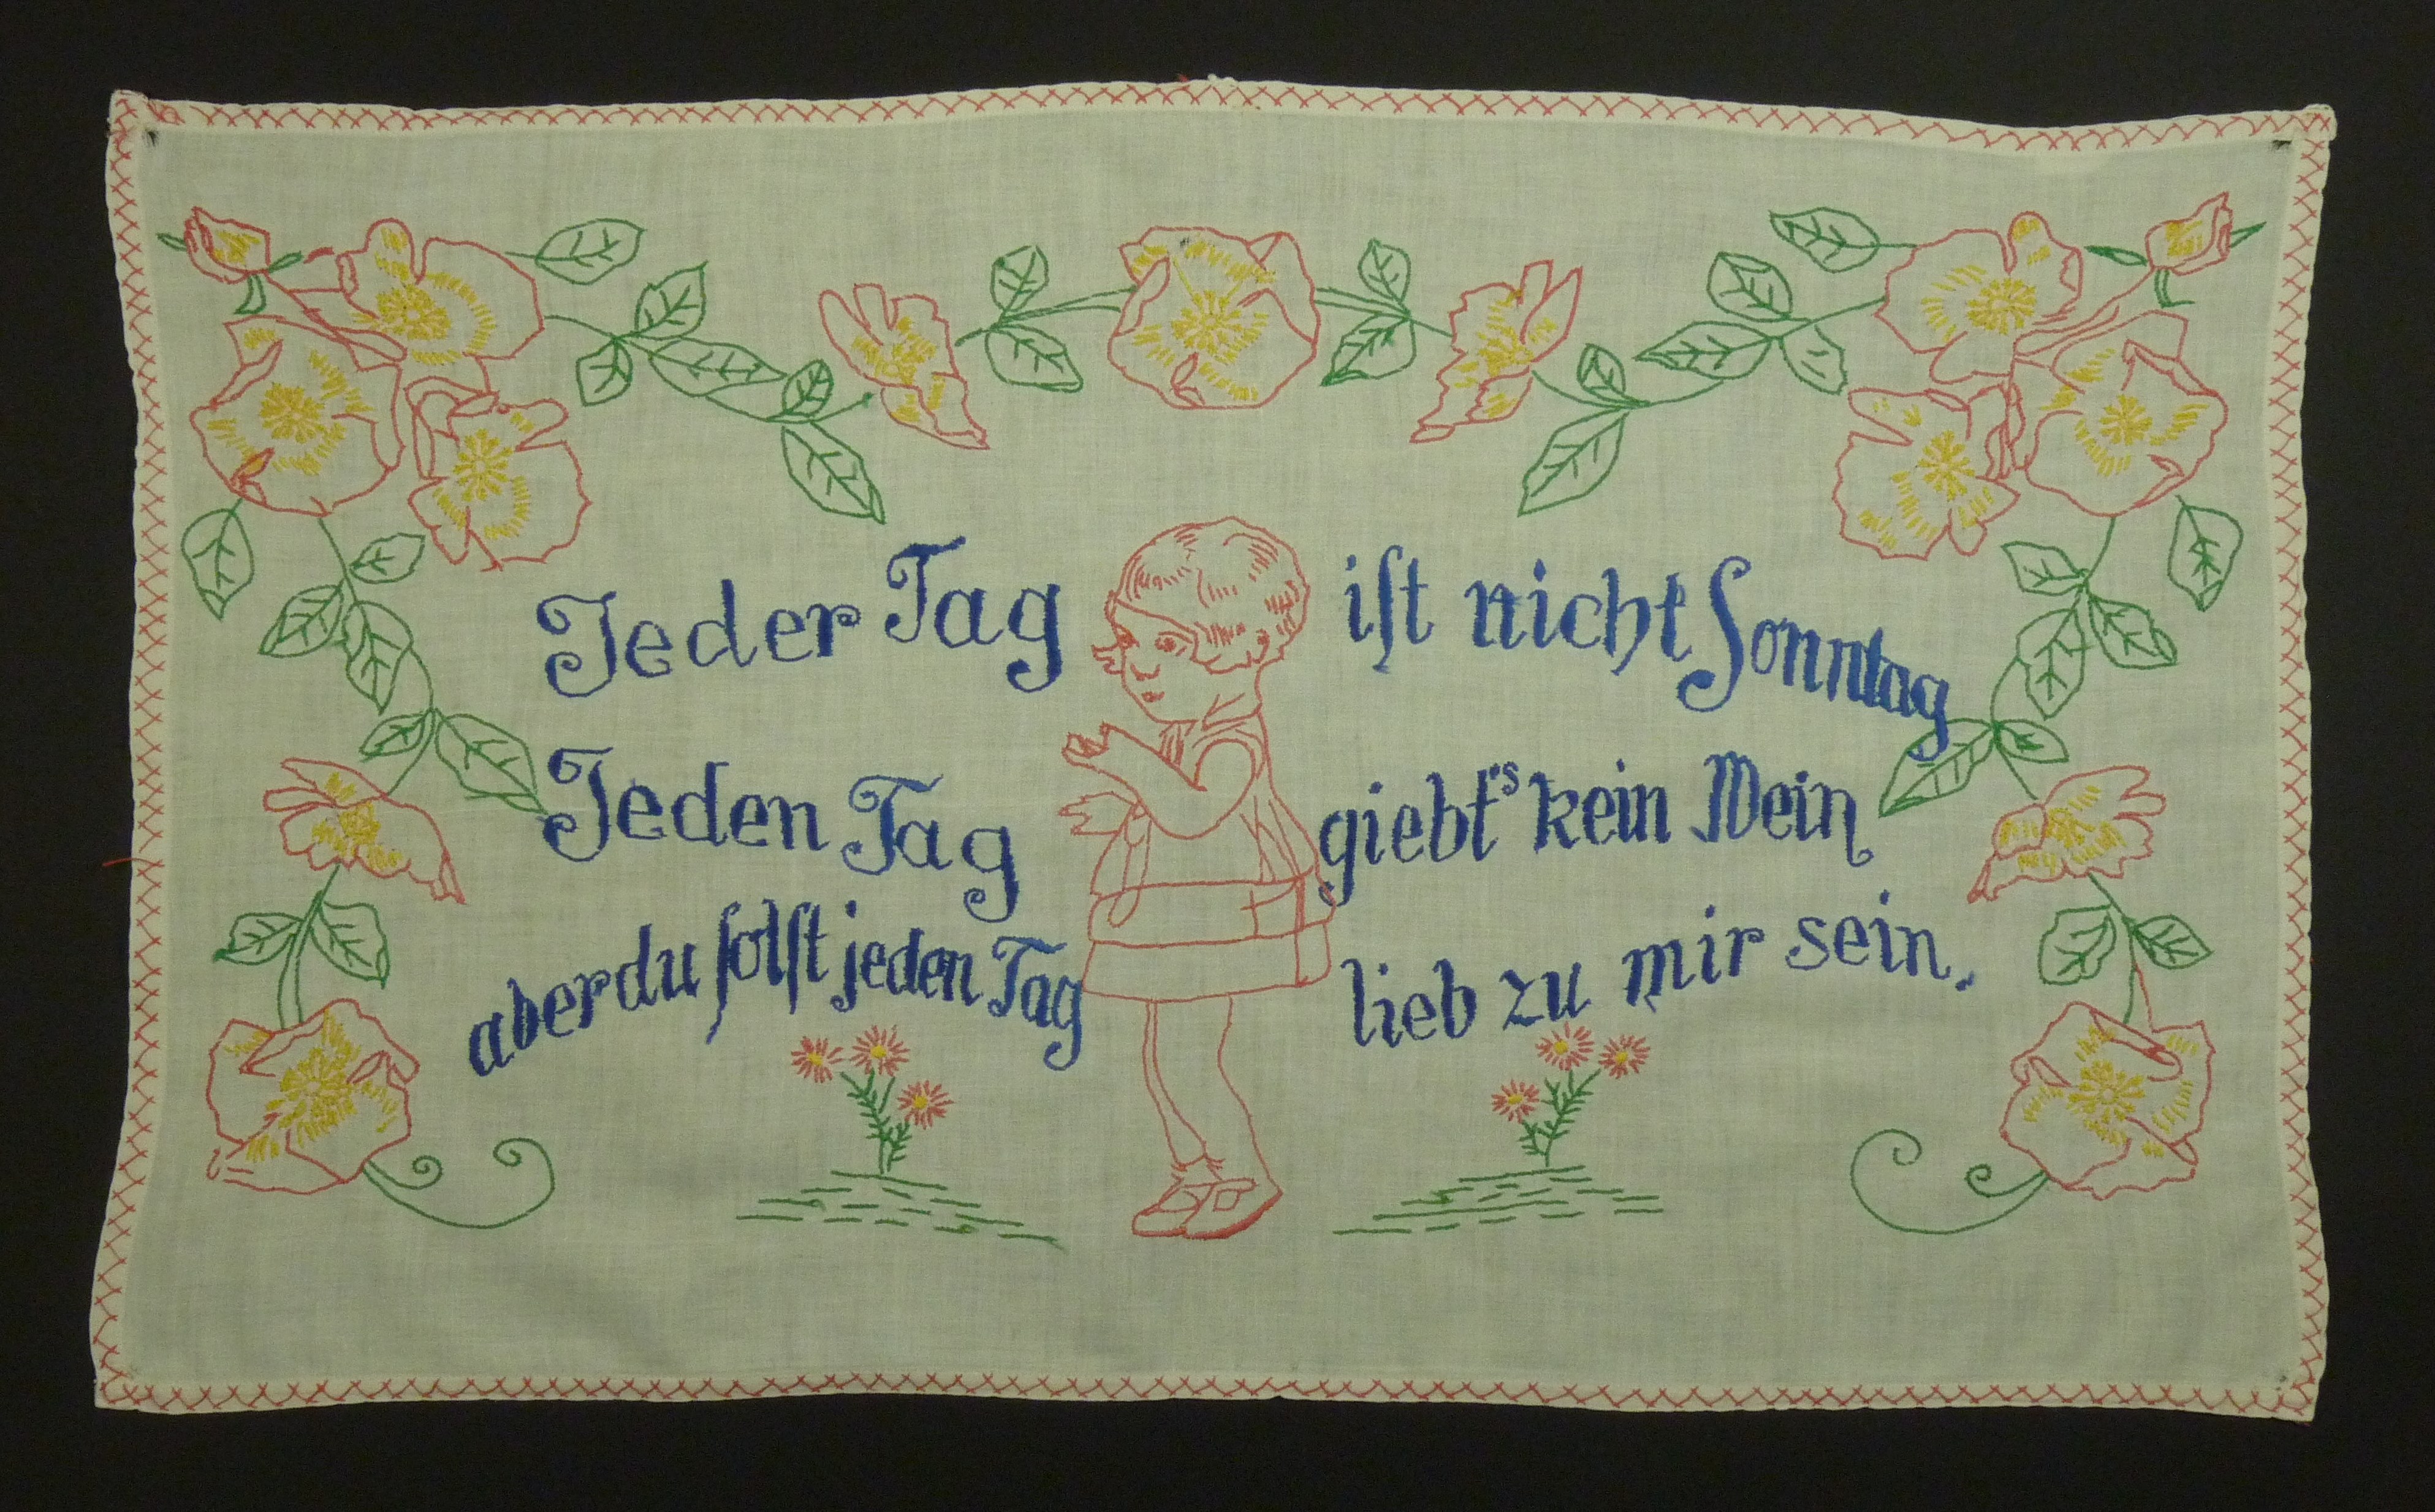 Jeder Tag iſt nicht Sonntag
Jeden Tag giebt's kein Wein
aber du ſolſt jeden Tag lieb zu mir sein.